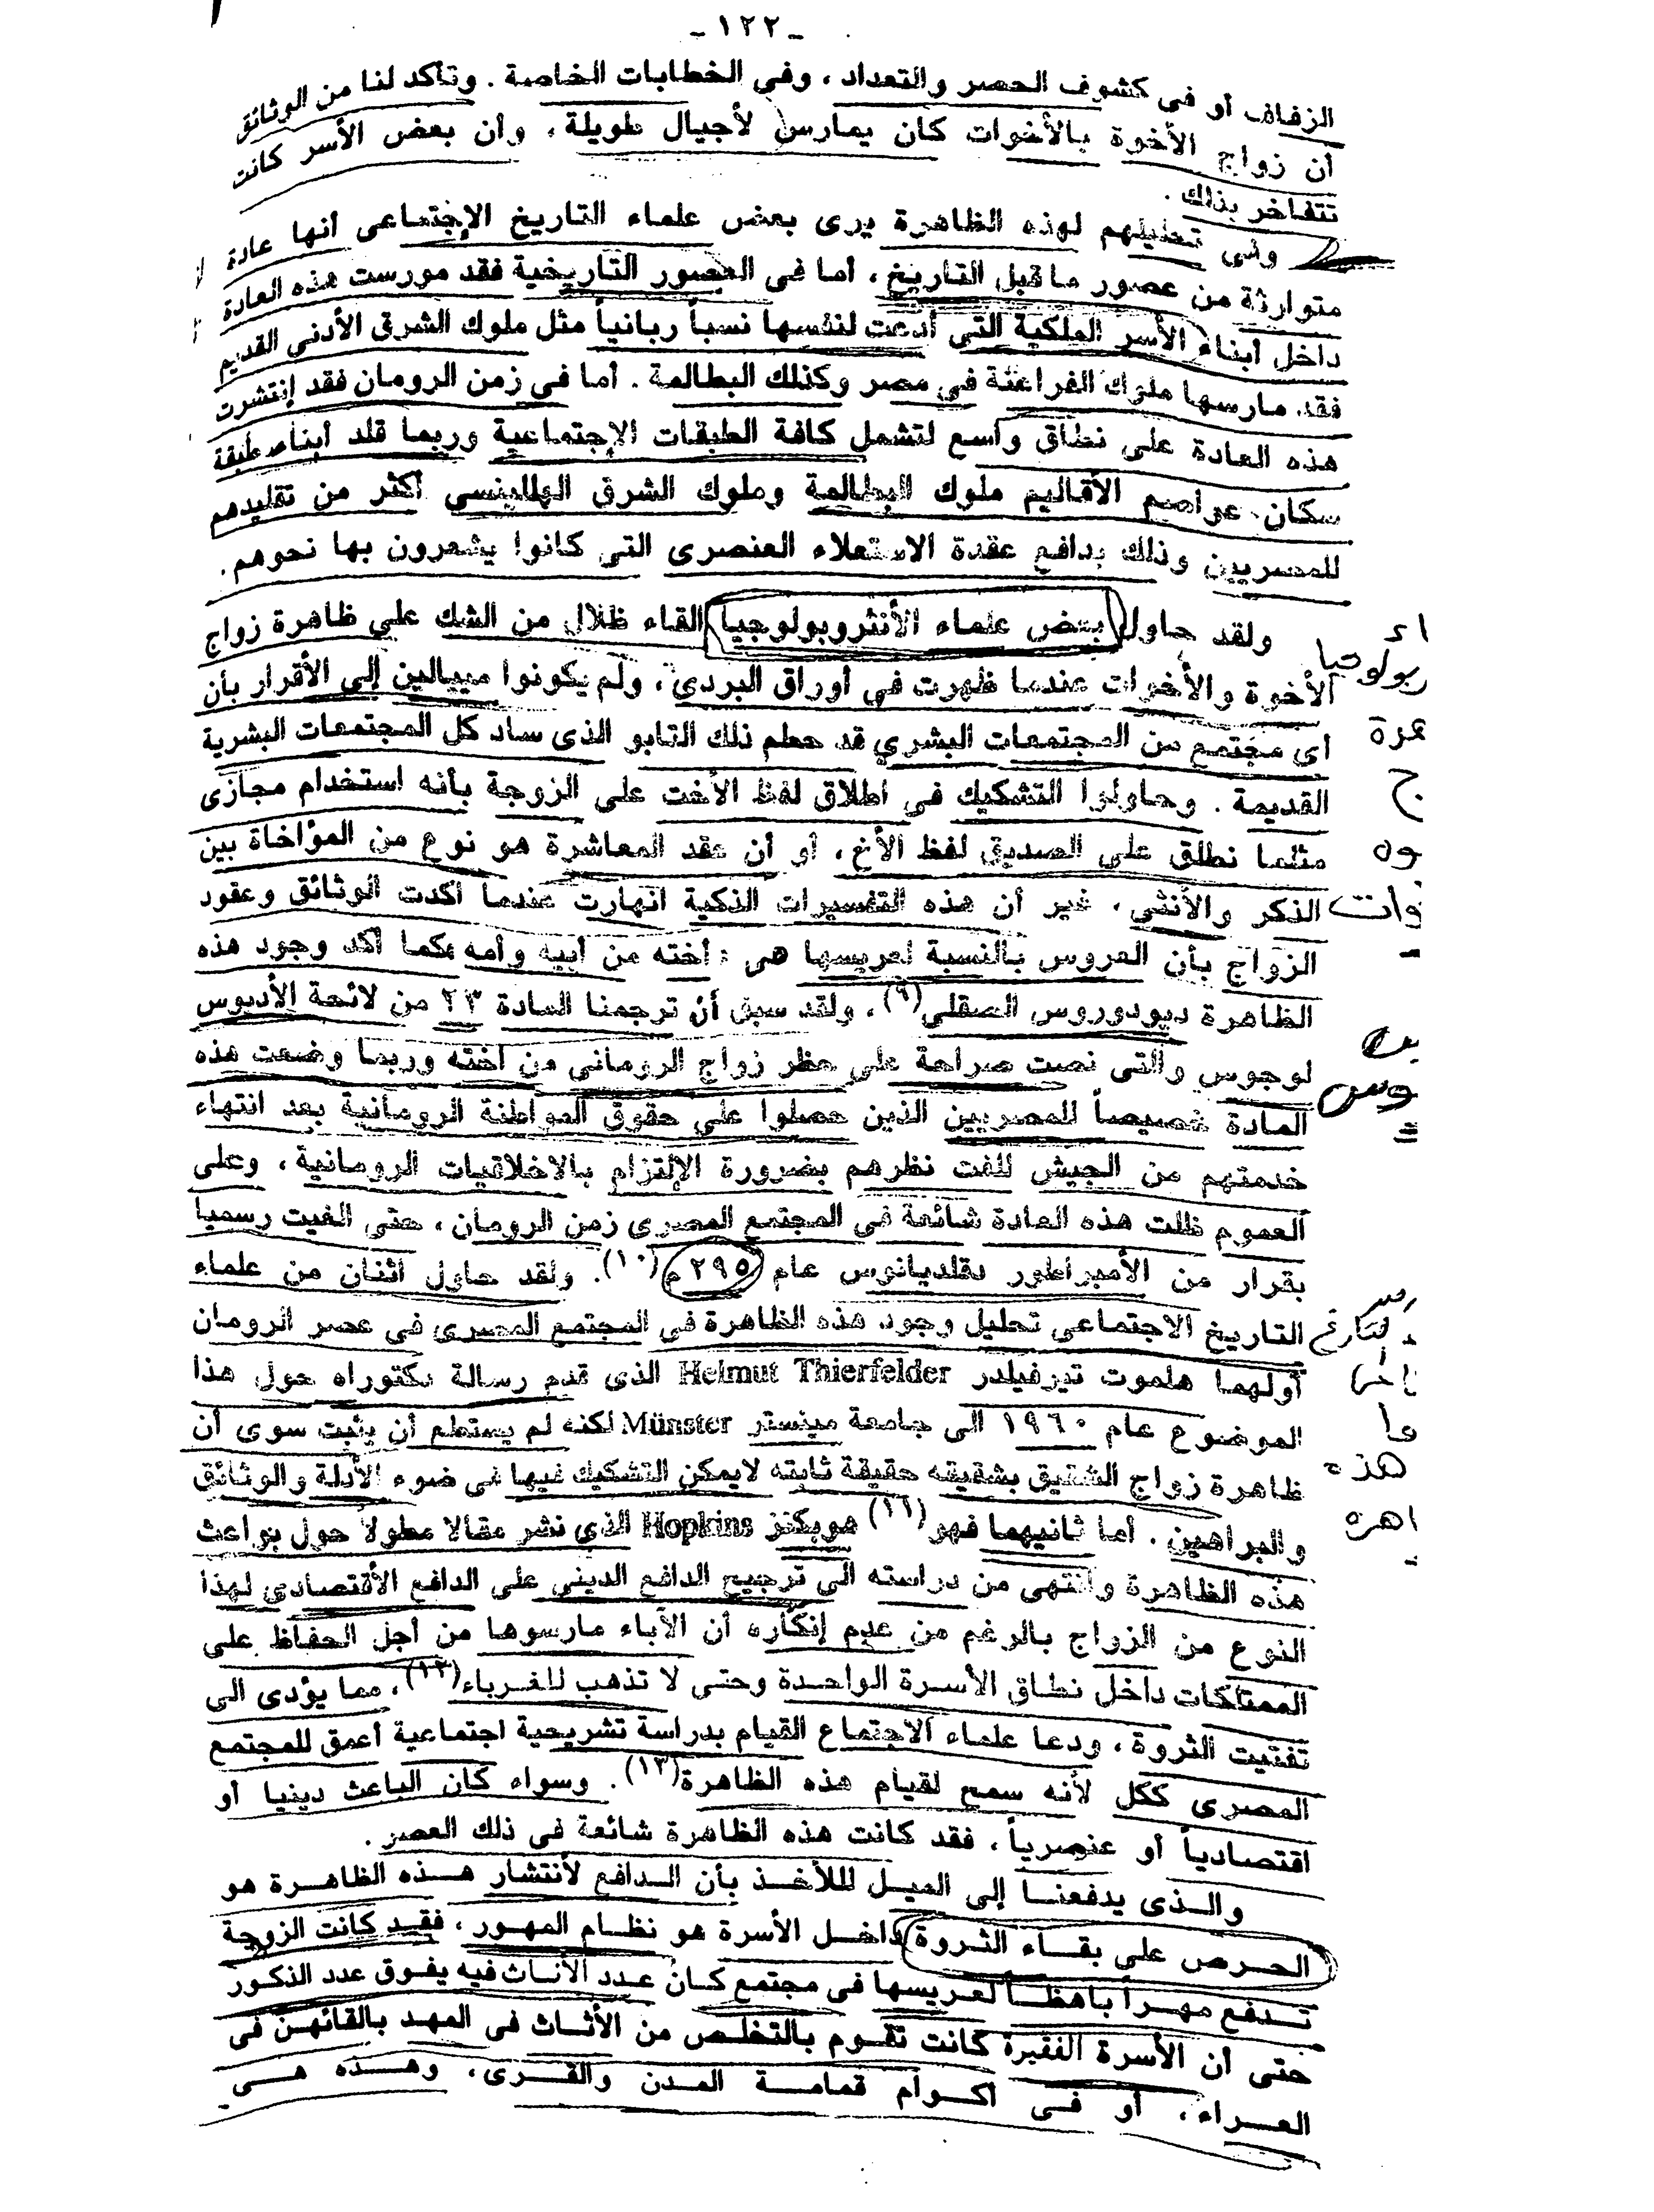 - ١٢٢ -
الزفاف أو فى كشوف الحصر والتعداد ، وفى الخطابات الخاصة . وتأكد لنا من الوثائق
أن زواج الأخوة بالأخوات كان يمارس لأجيال طويلة ، وأن بعض الأسر كانت
تتفاخر بذلك .
وفى تحليلهم لهذه الظاهرة يرى بعض علماء التاريخ الإجتماعى أنها عادة
متوارثة من عصور ماقبل التاريخ ، أما فى العصور التاريخية فقد مورست هذه العادة
داخل أبناء الأسر الملكية التى أدعت لنفسها نسباً ربانياً مثل ملوك الشرق الأدنى القديم
فقد مارسها ملوك الفراعنة فى مصر وكذلك البطالمة . أما فى زمن الرومان فقد إنتشرت
هذه العادة على نطاق واسع لتشمل كافة الطبقات الإجتماعية وربما قلد أبناء طبقة
سكان عواصم الأقاليم ملوك البطالمة وملوك الشرق الهللينسى أكثر من تقليدهم
للمصريين وذلك بدافع عقدة الاستعلاء العنصرى التى كانوا يشعرون بها نحوهم .
ولقد حاول بعض علماء الأنثروبولوجيا القاء ظلال من الشك على ظاهرة زواج
الأخوة والأخوات عندما ظهرت فى أوراق البردى ، ولم يكونوا ميالين إلى الأقرار بأن
أى مجتمع من المجتمعات البشري قد حطم ذلك التابو الذى ساد كل المجتمعات البشرية
القديمة . وحاولوا التشكيك فى اطلاق لفظ الأخت على الزوجة بأنه استخدام مجازى
مثلما نطلق على الصديق لفظ الأخ ، أو أن عقد المعاشرة هو نوع من المؤاخاة بين
الذكر والأنثى ، غير أن هذه التفسيرات الذكية انهارت عندما أكدت الوثائق وعقود
الزواج بأن العروس بالنسبة لعريسها هى : أخته من أبيه وأمه كما أكد وجود هذه
الظاهرة ديودوروس الصقلى(٩) ، ولقد سبق أن ترجمنا المادة ٢٣ من لائحة الأديوس
لوجوس والتى نصت صراحة على حظر زواج الرومانى من أخته وربما وضعت هذه
المادة خصيصاً للمصريين الذين حصلوا على حقوق المواطنة الرومانية بعد انتهاء
خدمتهم من الجيش للفت نظرهم بضرورة الإلتزام بالاخلاقيات الرومانية ، وعلى
العموم ظلت هذه العادة شائعة فى المجتمع المصرى زمن الرومان ، حتى الغيت رسميا
بقرار من الأمبراطور دقلديانوس عام ٢٩٥م(١٠) . ولقد حاول أثنان من علماء
التاريخ الاجتماعى تحليل وجود هذه الظاهرة فى المجتمع المصرى فى عصر الرومان
أولهما هلموت تيرفيلدر Helmut Thierfelder الذى قدم رسالة دكتوراه حول هذا
الموضوع عام ١٩٦٠ الى جامعة مينستر Münster لكنه لم يستطع أن يثبت سوى أن
ظاهرة زواج الشقيق بشقيقه حقيقة ثابته لايمكن التشكيك فيها فى ضوء الأدلة والوثائق
والبراهين . أما ثانيهما فهو(١١) هوبكنز Hopkins الذى نشر مقالا مطولا حول بواعث
هذه الظاهرة وأنتهى من دراسته الى ترجيح الدافع الدينى على الدافع الأقتصادى لهذا
النوع من الزواج بالرغم من عدم إنكاره أن الآباء مارسوها من أجل الحفاظ على
الممتلكات داخل نطاق الأسرة الواحدة وحتى لا تذهب للغرباء(١٢) ، مما يؤدى الى
تفتيت الثروة ، ودعا علماء الاجتماع القيام بدراسة تشريحية اجتماعية أعمق للمجتمع
المصرى ككل لأنه سمح لقيام هذه الظاهرة(١٣) . وسواء كان الباعث دينيا أو
اقتصادياً أو عنصرياً ، فقد كانت هذه الظاهرة شائعة فى ذلك العصر .
والذى يدفعنا إلى الميل للأخذ بأن الدافع لأنتشار هذه الظاهرة هو
الحرص على بقاء الثروة داخل الأسرة هو نظام المهور ، فقد كانت الزوجة
تدفع مهراً باهظاً لعريسها فى مجتمع كان عدد الأناث فيه يفوق عدد الذكور
حتى أن الأسرة الفقيرة كانت تقوم بالتخلص من الأناث فى المهد بالقائهن فى
العراء ، أو فى أكوام قمامة المدن والقرى ، وهذه هى